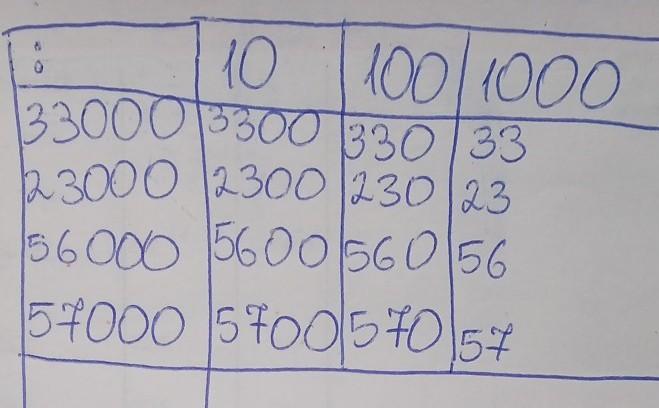 : 10 100 1000
33000 3300 330 33
23000 2300 230 23
56000 5600 560 56
57000 5700 570 57